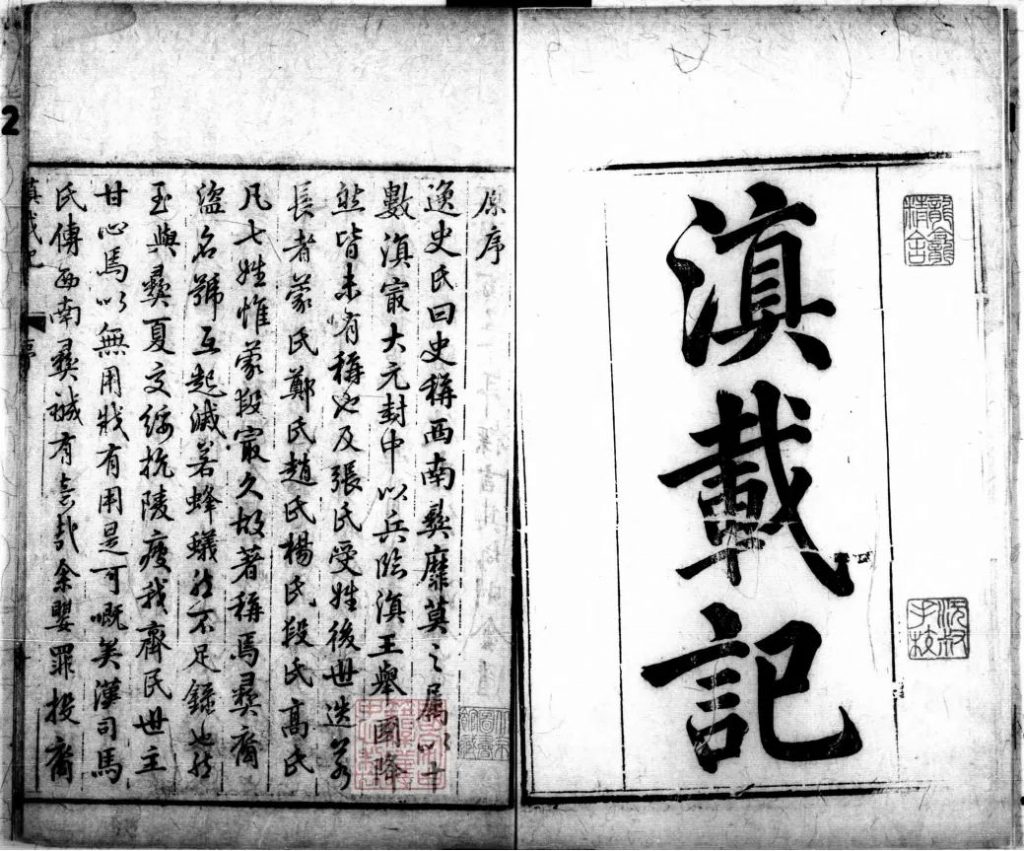 滇載記
原序
逸史氏曰史稱西南彛靡莫之屬以十
數滇㝡大元封中以兵臨滇王舉國降
然皆未有稱也及張氏受姓後世迭為
長者蒙氏鄭氏趙氏楊氏段氏高氏
凡七姓惟蒙段㝡久故著稱焉彛裔
盜名號互起滅若蜂蟻然不足錄也然
至與彛夏交綏抗陵疲我齊民世主
甘心焉以無用戕有用是可嘅矣漢司馬
氏傳西南彛機有哉余嬰罪投裔
滇載記